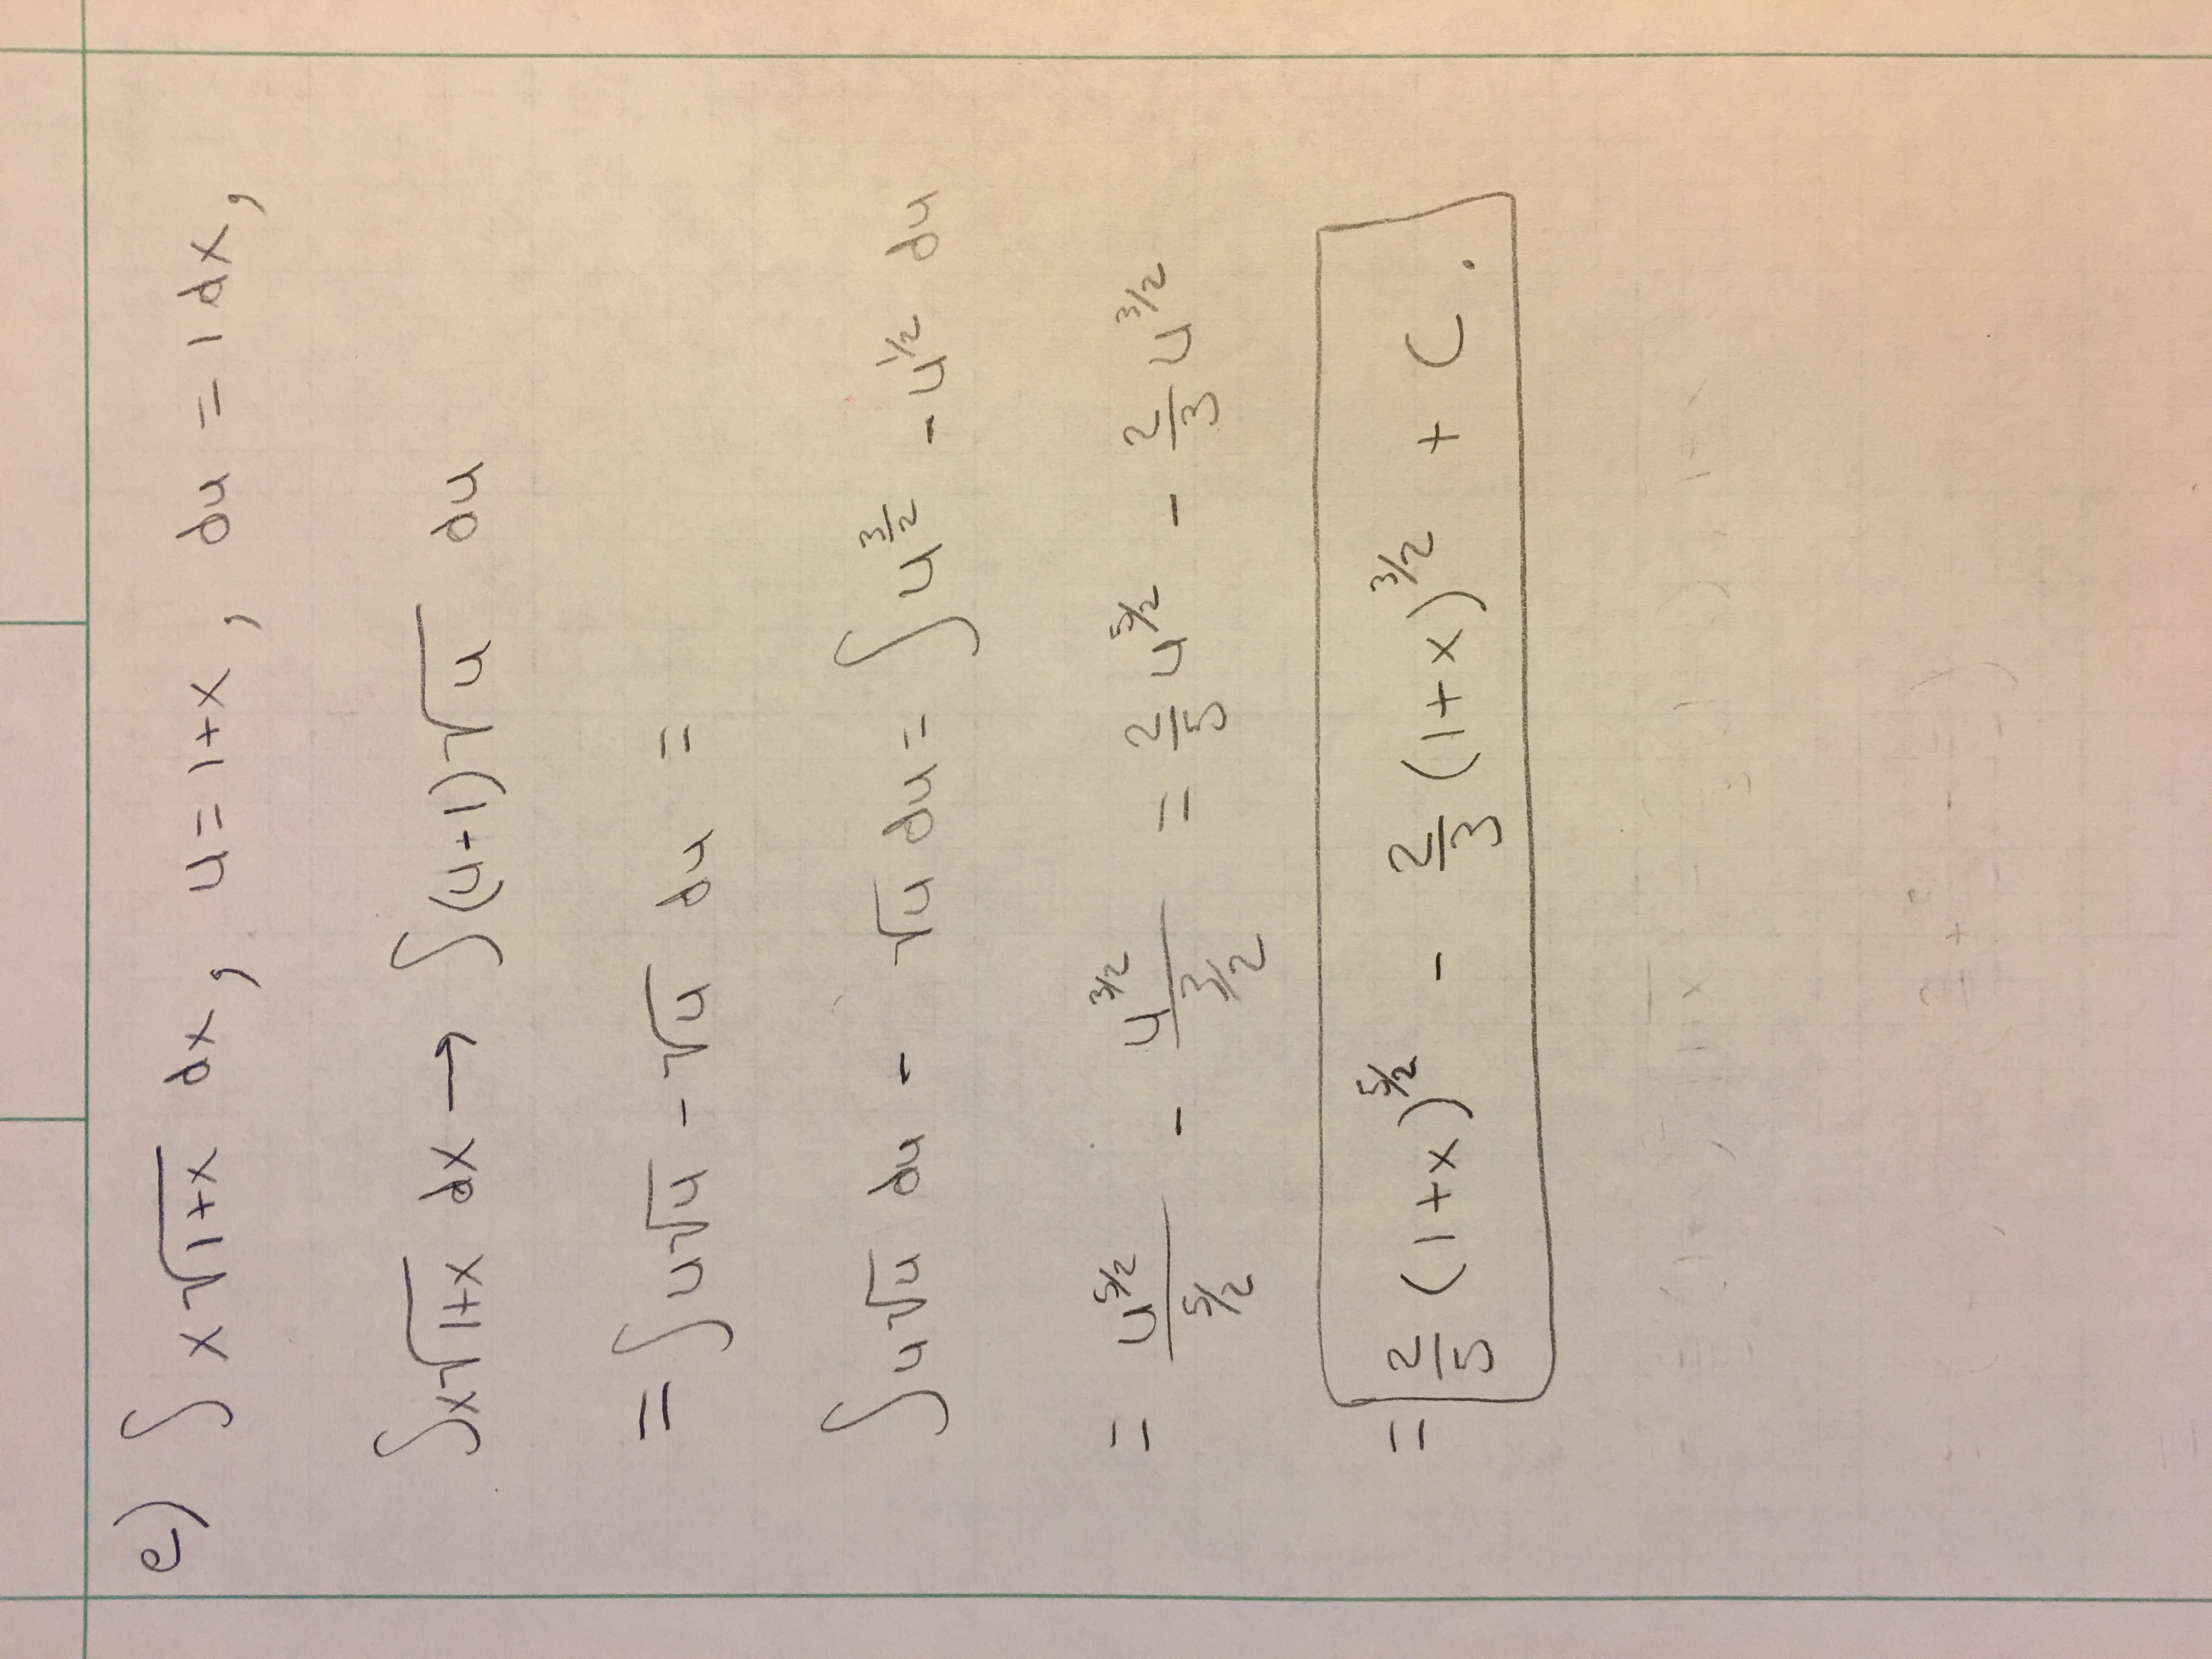 e) ∫ x√(1+x) dx, u = 1+x, du = 1 dx,
∫x√(1+x) dx → ∫(u-1)√u du
= ∫ u√u - √u du =
∫ u√u du - √u du = ∫ u^(3/2) - u^(1/2) du
= u^(5/2)/(5/2) - u^(3/2)/(3/2) = 2/5 u^(5/2) - 2/3 u^(3/2)
= 2/5 (1+x)^(5/2) - 2/3 (1+x)^(3/2) + C.